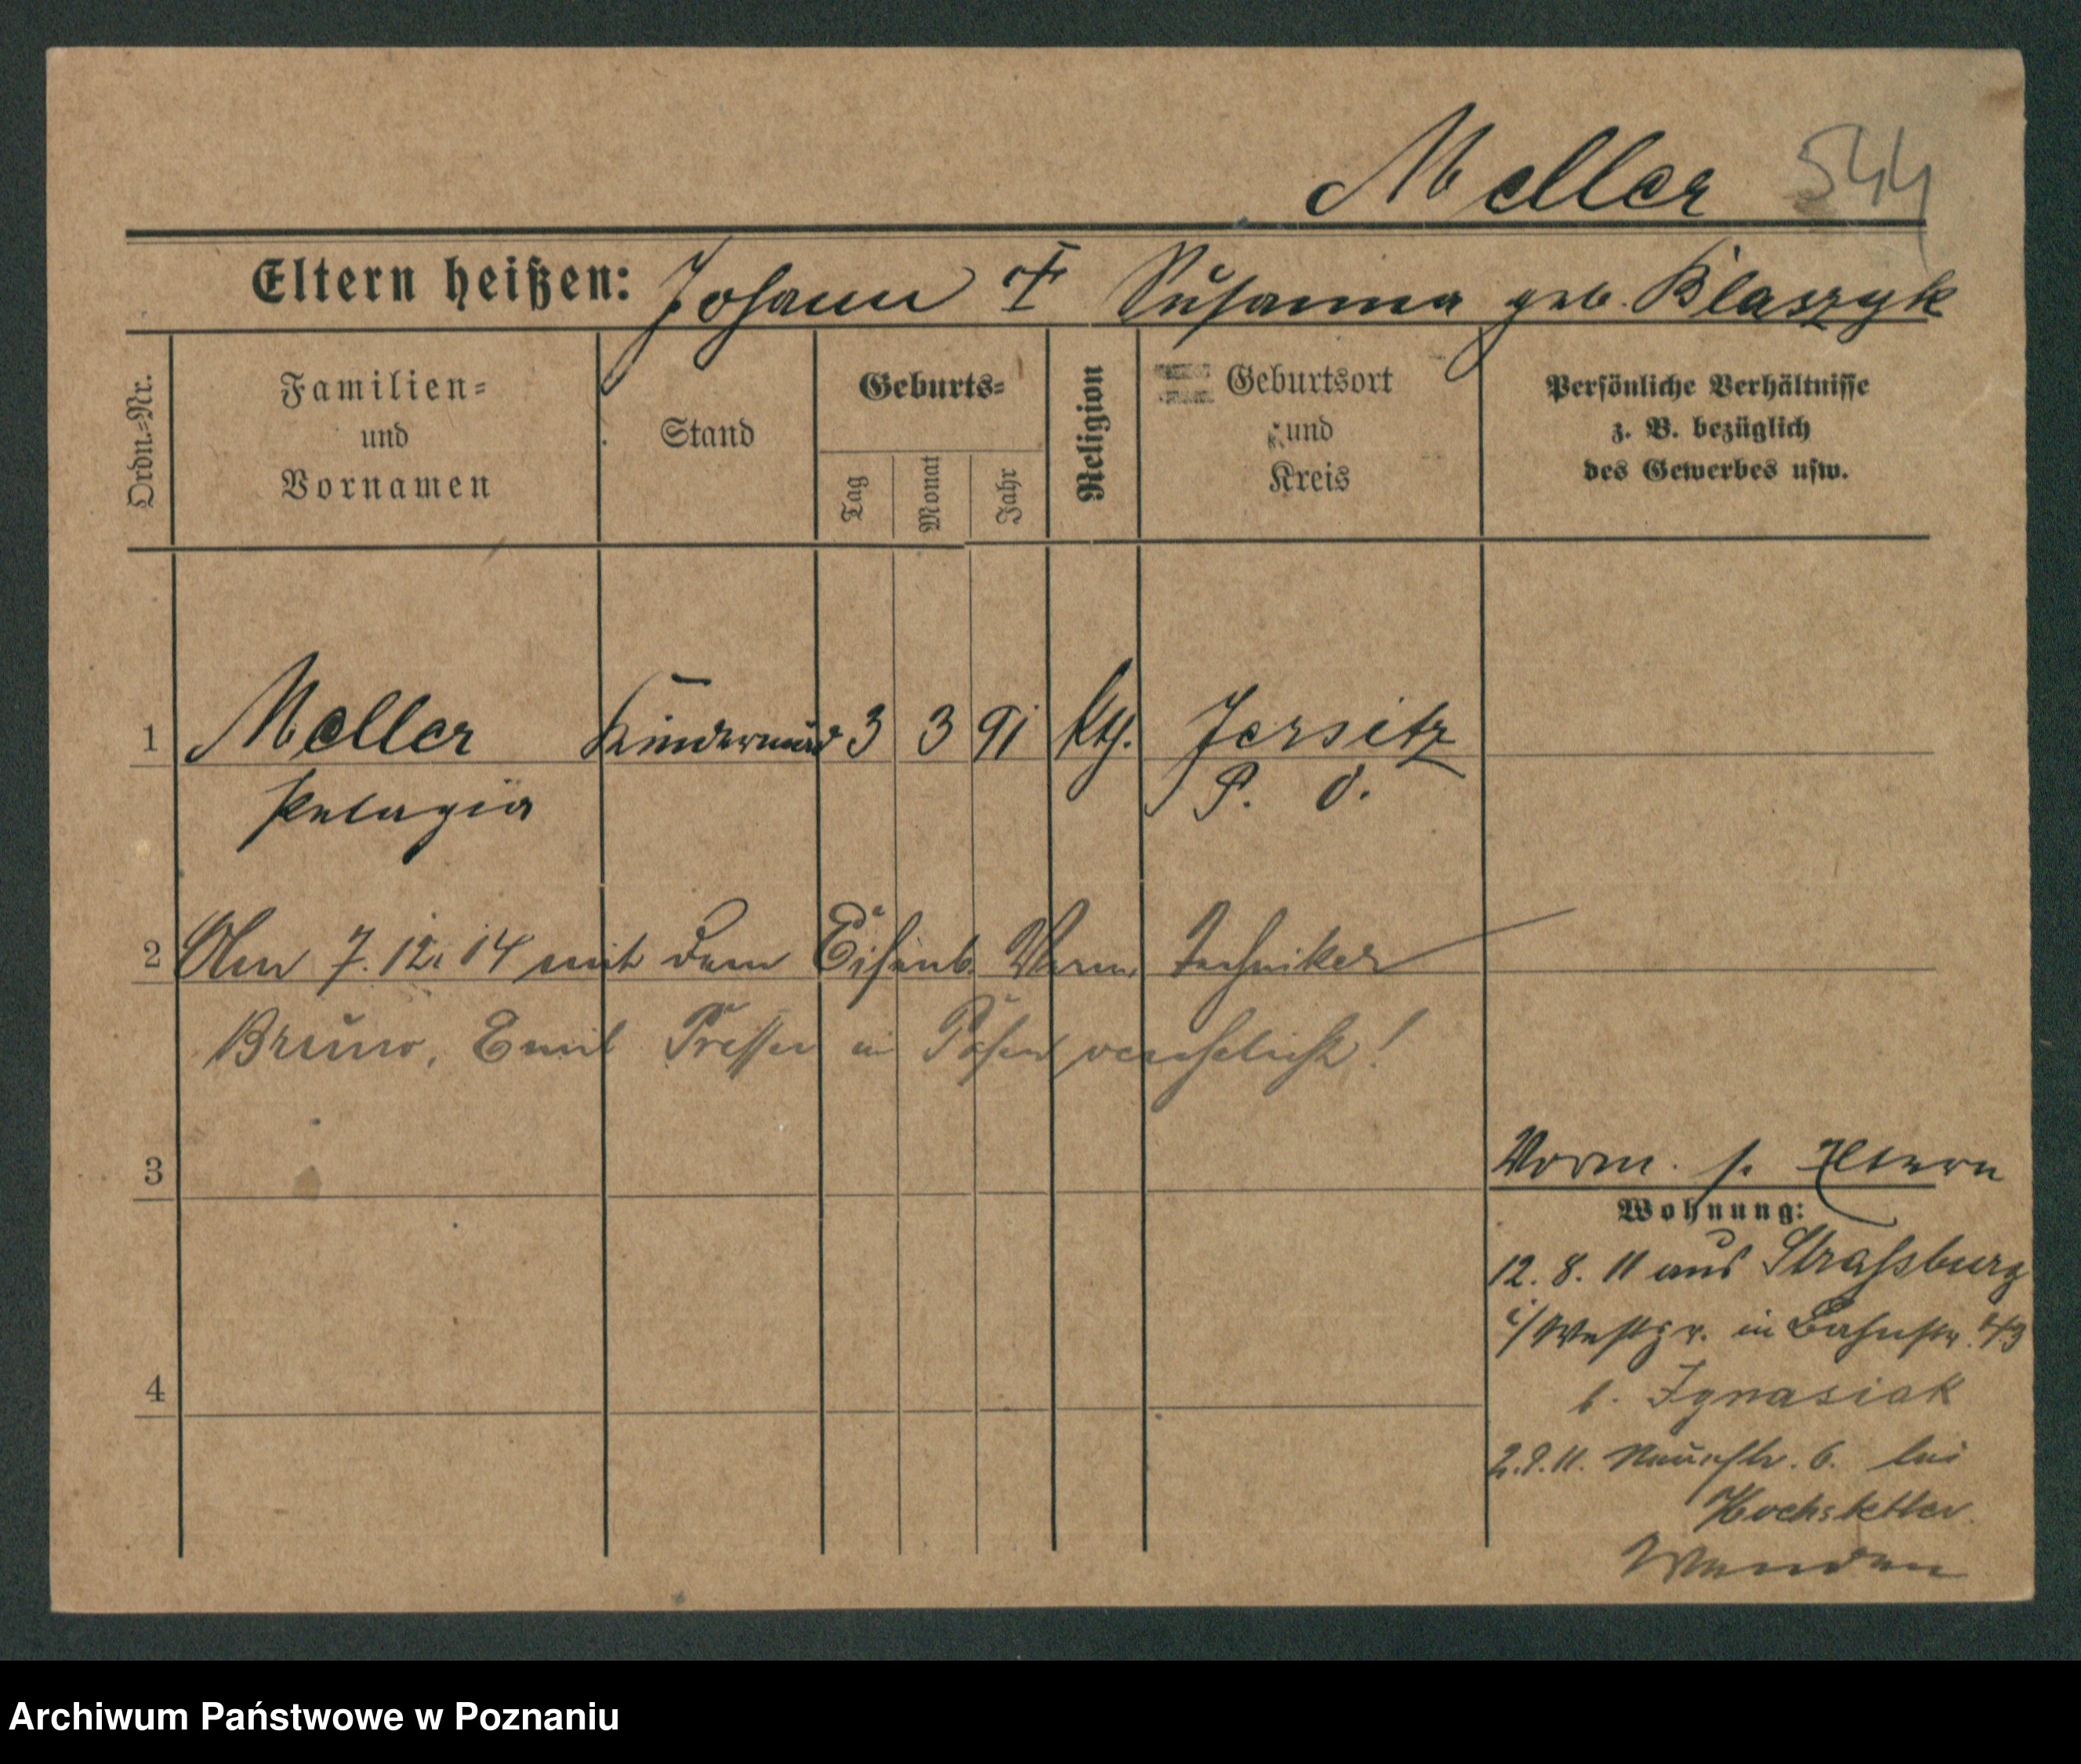 Meller 544
Eltern heißen: Johann † Susanna geb. Blaszyk
Ordn.=Nr.
Familien=
und
Vornamen
Stand
Geburts=
Tag
Monat
Jahr
Religion
Geburtsort
und
Kreis
Persönliche Verhältnisse
z. B. bezüglich
des Gewerbes usw.
1 Meller 3 3 91 kth. Jersitz
Pelagia P. O.
2 Am 7.12.14 mit dem Eisenb. Techniker
Bruno, Emil in Posen verehelicht!
3
Vorm. s. Eltern
Wohnung:
12. 8. 11 aus Strassburg
i/Westpr. in Bahnstr. 43
b. Ignasiak
4
2.9.11. Neuestr. 6. bei
Hochstetter
Wenden
Archiwum Państwowe w Poznaniu